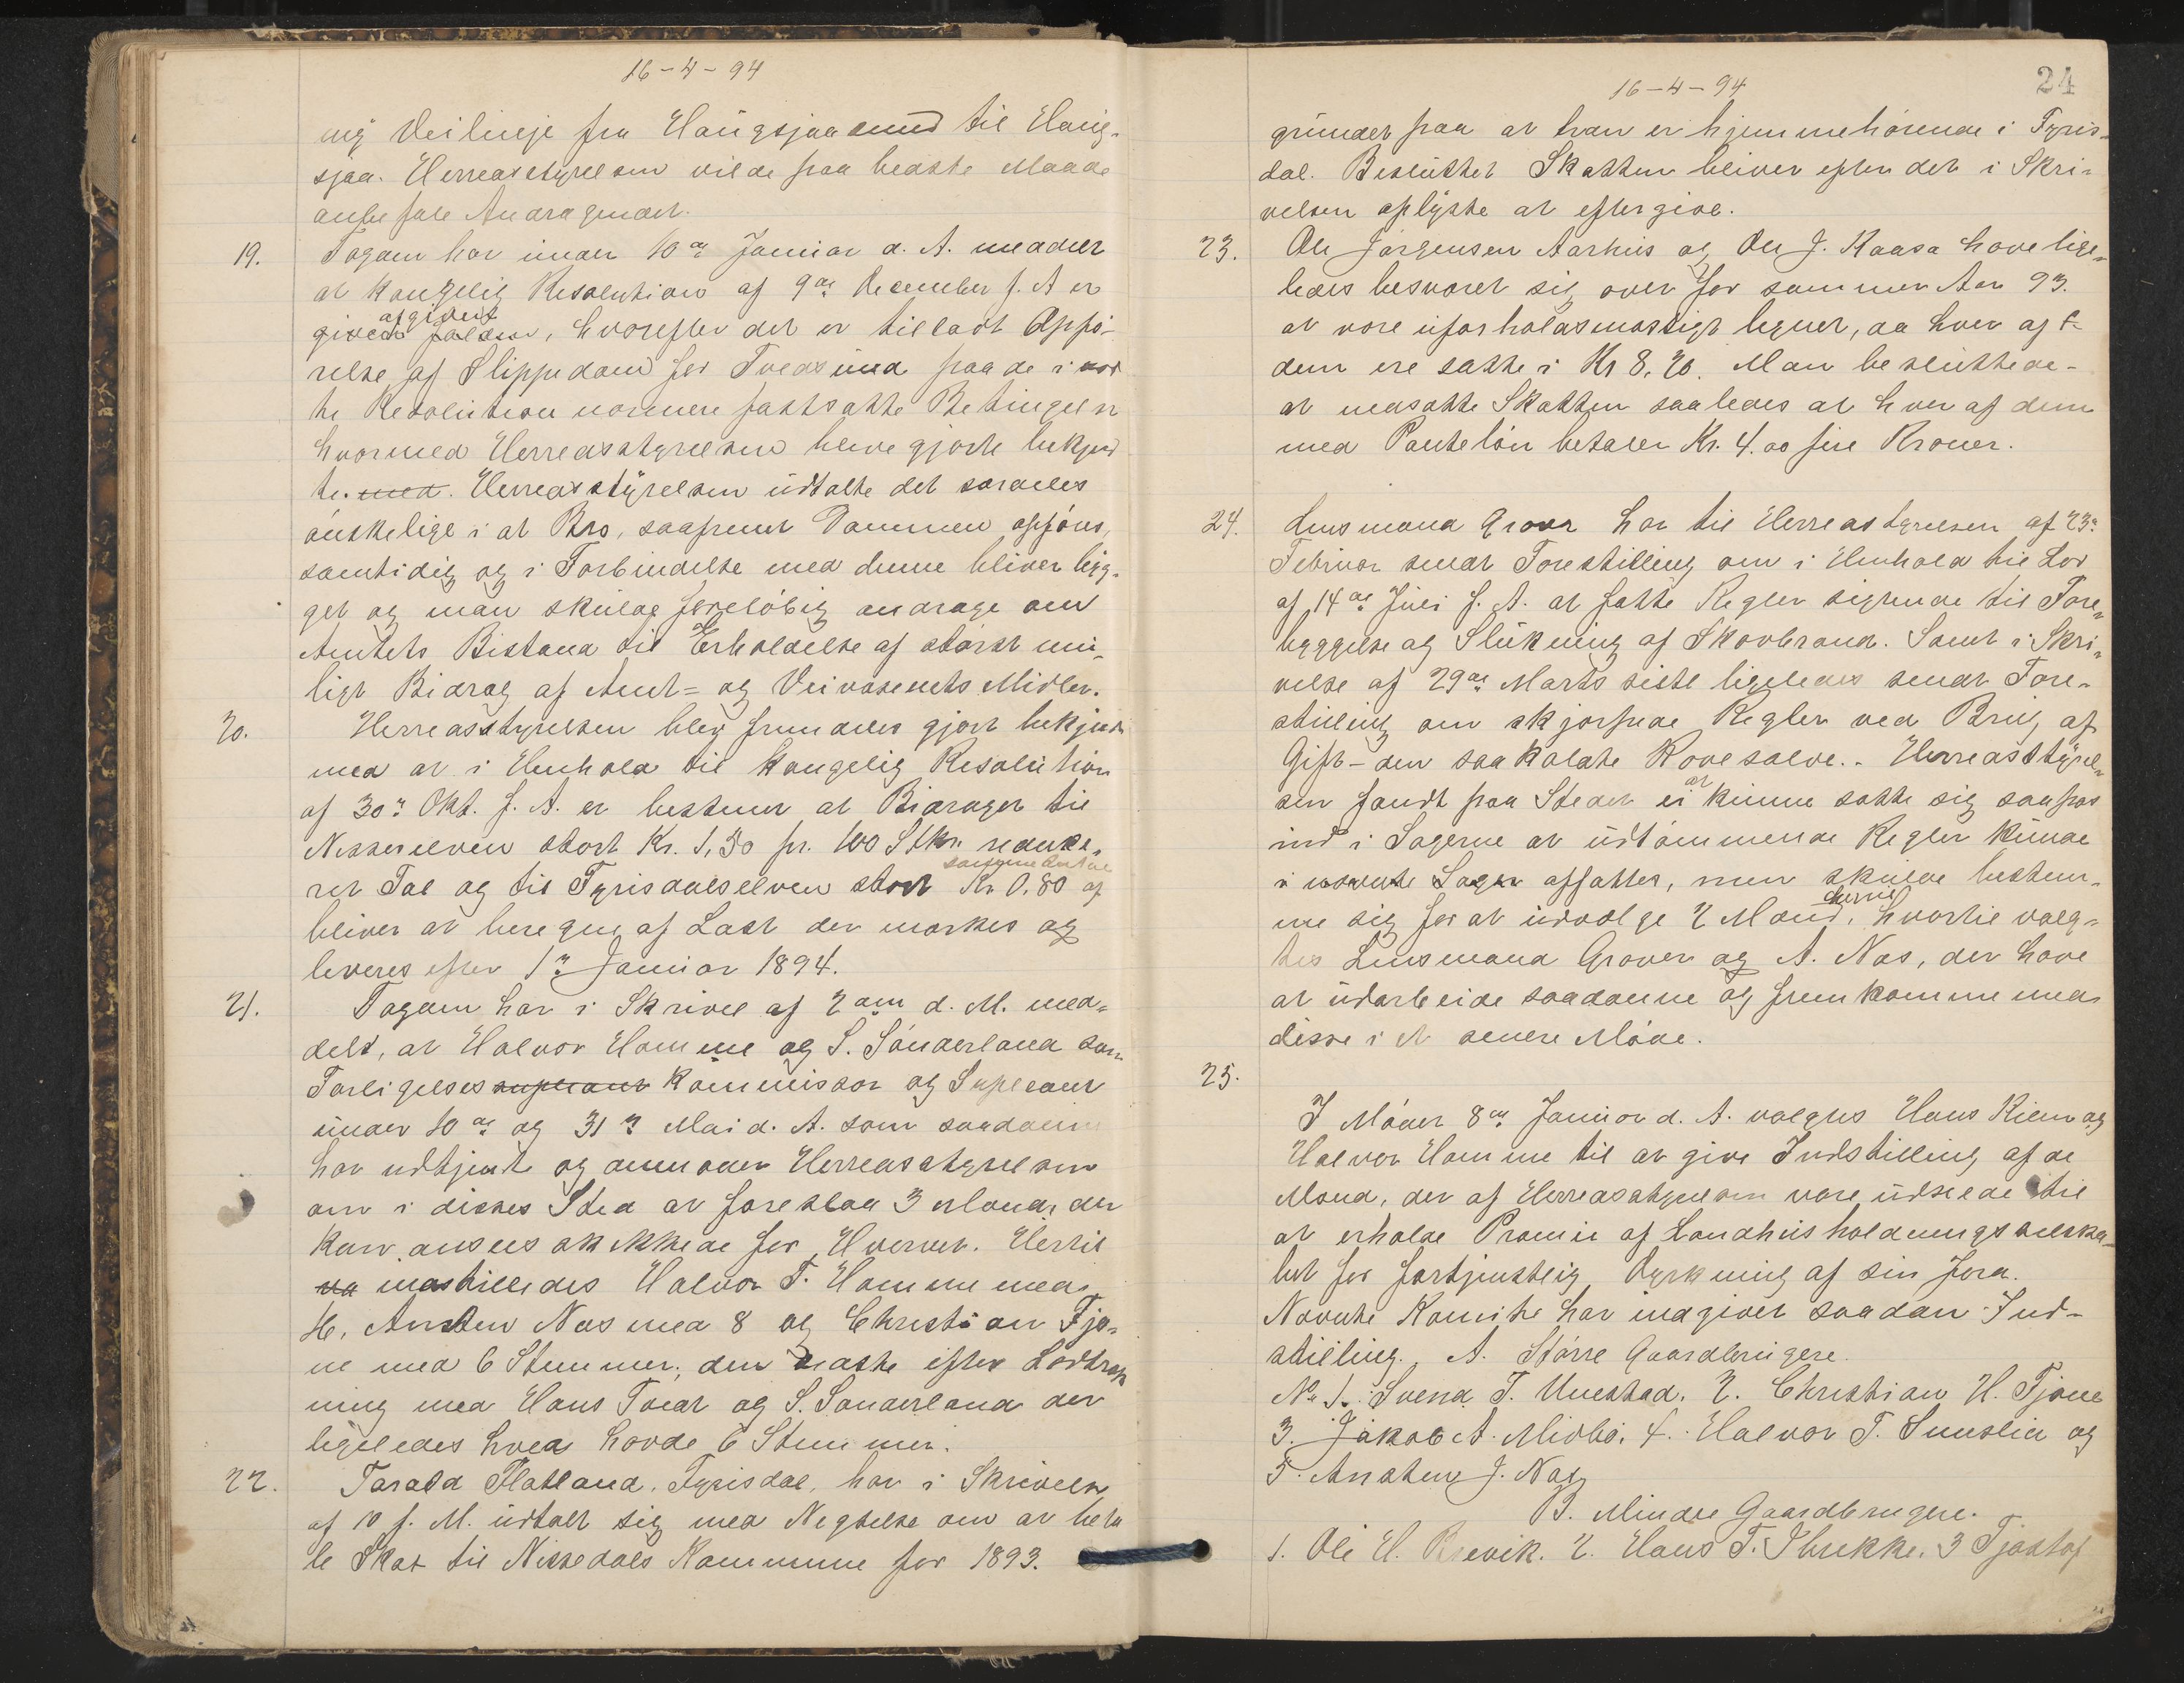 16-4-94
ny Veilinje fra Haugsjaasund til Haug-
sjaa. Herredsstyrelsen vilde paa bedste Maade
anbefale Andragendet.
19. Fogden har under 10de Januar d. A. meddelt
at kongelig Resolution af 9de December f. A er
afgivent
givent falden, hvorefter det er tilladt Opfö-
relse af Slippedam for Tvedsund paa de i
te Resolution nærmere fastsatte Betingelser
hvormed Herredsstyrelsen bleve gjorte bekjend
te. med. Herredsstyrelsen udtalte det særdeles
önskelige i at Bro, saafremt Dammen opföres,
samtidig og i Forbindelse med denne bliver byg-
get og man skulde foreløbig andrage om
Amtets Bistand til Erholdelse af störst mu-
ligt Bidrag af Amt- og Veivæsenets Midler.
20. Herredsstyrelsen blev fremdeles gjort bekjendt
med at i Henhold til kongelig Resolution
af 30te Okt. f. A. er bestemt at Bidraget til
Nisserelven stort Kr. 1,30 pr. 100 Stkr. reduce-
samme Antal
ret Tal og til Fyrisdalselven stort Kr 0.80 af
bliver at beregne af Last der mærkes og
leveres efter 1ste Januar 1894.
21. Fogden har i Skrivel af 2den d. M. med-
delt, at Halvor Homme og S. Sönderland som
Forligelses supleant Kommissær og Supleant
under 10de og 31te Mai d. A. som saadanne
har udtjent og anmoder Herredsstyrelsen
om i disses Sted at foreslaa 3 Mænd, der
kan ansees skikkede for Hvervet. Hertil
va indstilledes Halvor T. Homme med
16, Ansten Næs med 8 og Christian Fjo-
ne med 6 Stemmer, den sidste efter Lodtræk
ning med Hans Tvedt og S. Sönderland der
ligeledes hver havde 6 Stemmer.
22. Tarald Flatland, Fyrisdal, har i Skrivelse
af 10 f. M. udtalt sig med Negtelse om at beta
le Skat til Nissedals Kommune for 1893.
24
16-4-94
grundet paa at han er hjemmehörende i Fyris-
dal. Besluttet Skatten bliver efter det i Skri-
velsen oplyste at eftergive.
23. Ole Jörgensen Aarhus og Ole J. Kaasa have lige-
ledes besværet sig over for sommer Aar 93.
at være uforholdsmæssigt lignet, da hver af
dem ere satte i Kr 8.20. Man besluttede
at nedsatte Skatten saaledes at hver af dem
med Panteløn betaler Kr. 4.00 fire Kroner.
24. Lensmand Grover har til Herredstyrelsen af 23de
Februar sendt Forestilling om i Henhold til Lov
af 14de Juli f. A. at fatte Regler sigtende til Fore-
byggelse og Slukning af Skovbrand. Samt i Skri-
velse af 29de Marts sidstl ligeledes sendt Fore-
stilling om skjærpede Regler ved Brug af
Gift- den saakaldte Rovesalve. Herredsstyrel-
at
sen fandt paa Stedet ei kunne sætte sig saapas
ind i Sagerne at udtömmende Regler kunde
i nævnte Sager affattes, men skulde bestem-
dertil
me sig for at udvælge 2 Mænd, hvortil valg-
tes Lensmand Grover og A. Næs, der have
at udarbeide saadanne og fremkomme med
disse i et senere Möde.
25.
I Mödet 8de Januar d. A. valgtes Hans Kilen og
Halvor Homme til at give Indstilling af de
Mænd, der af Herredsstyrelsen være udseede til
at erholde Præmie af Landhusholdningsselska-
bet for fortjenstlig Dyrkning af sin Jord.
Nævnte Komite har indgivet saadan Ind-
stilling. A. Större Gaardbrugere.
No 1. Svend T. Unestad. 2. Christian H. Fjone
3. Jakob A. Midbö. 4. Halvor T. Sunslia og
5. Ansten J. Næs
B. Mindre Gaardbrugere.
1. Ole H. Brevik. 2. Hans T. Strukke. 3 Tjostof